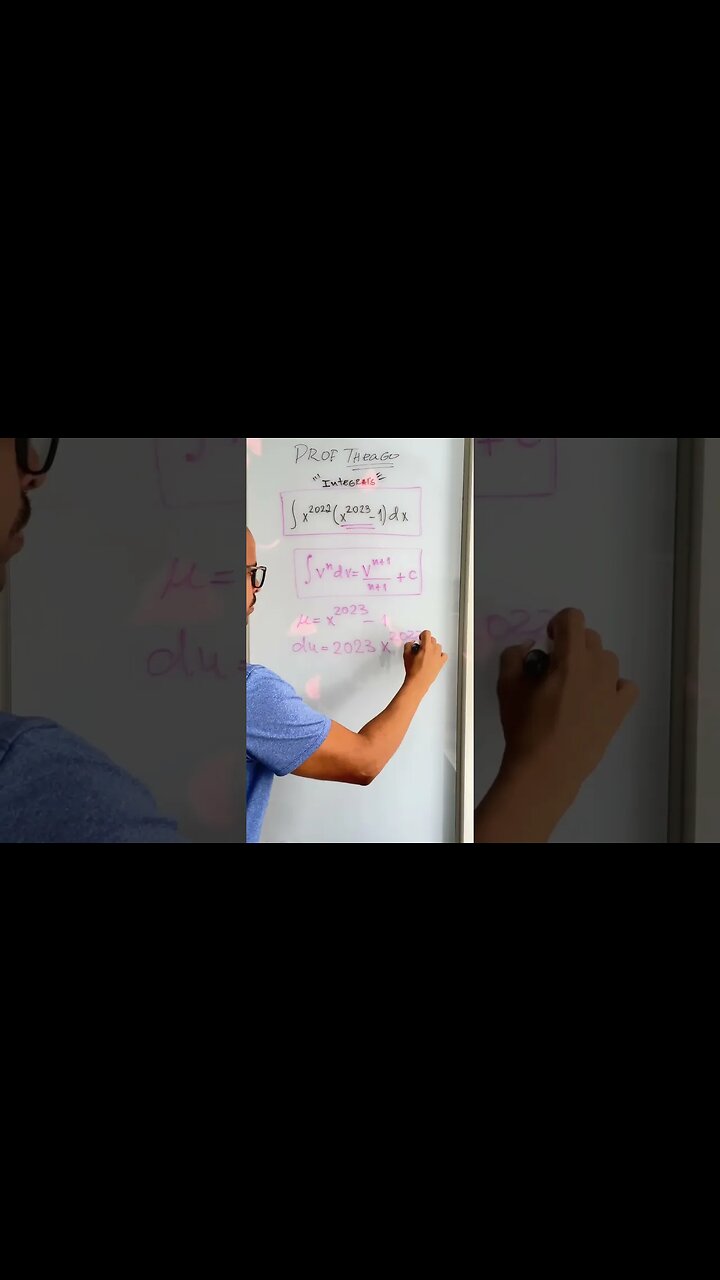 PROF THEAGO
"Integrals"
∫x²⁰²²(x²⁰²³-1)dx
∫vⁿdv=vⁿ⁺¹/n+1 +C
μ=x²⁰²³-1
du=2023x